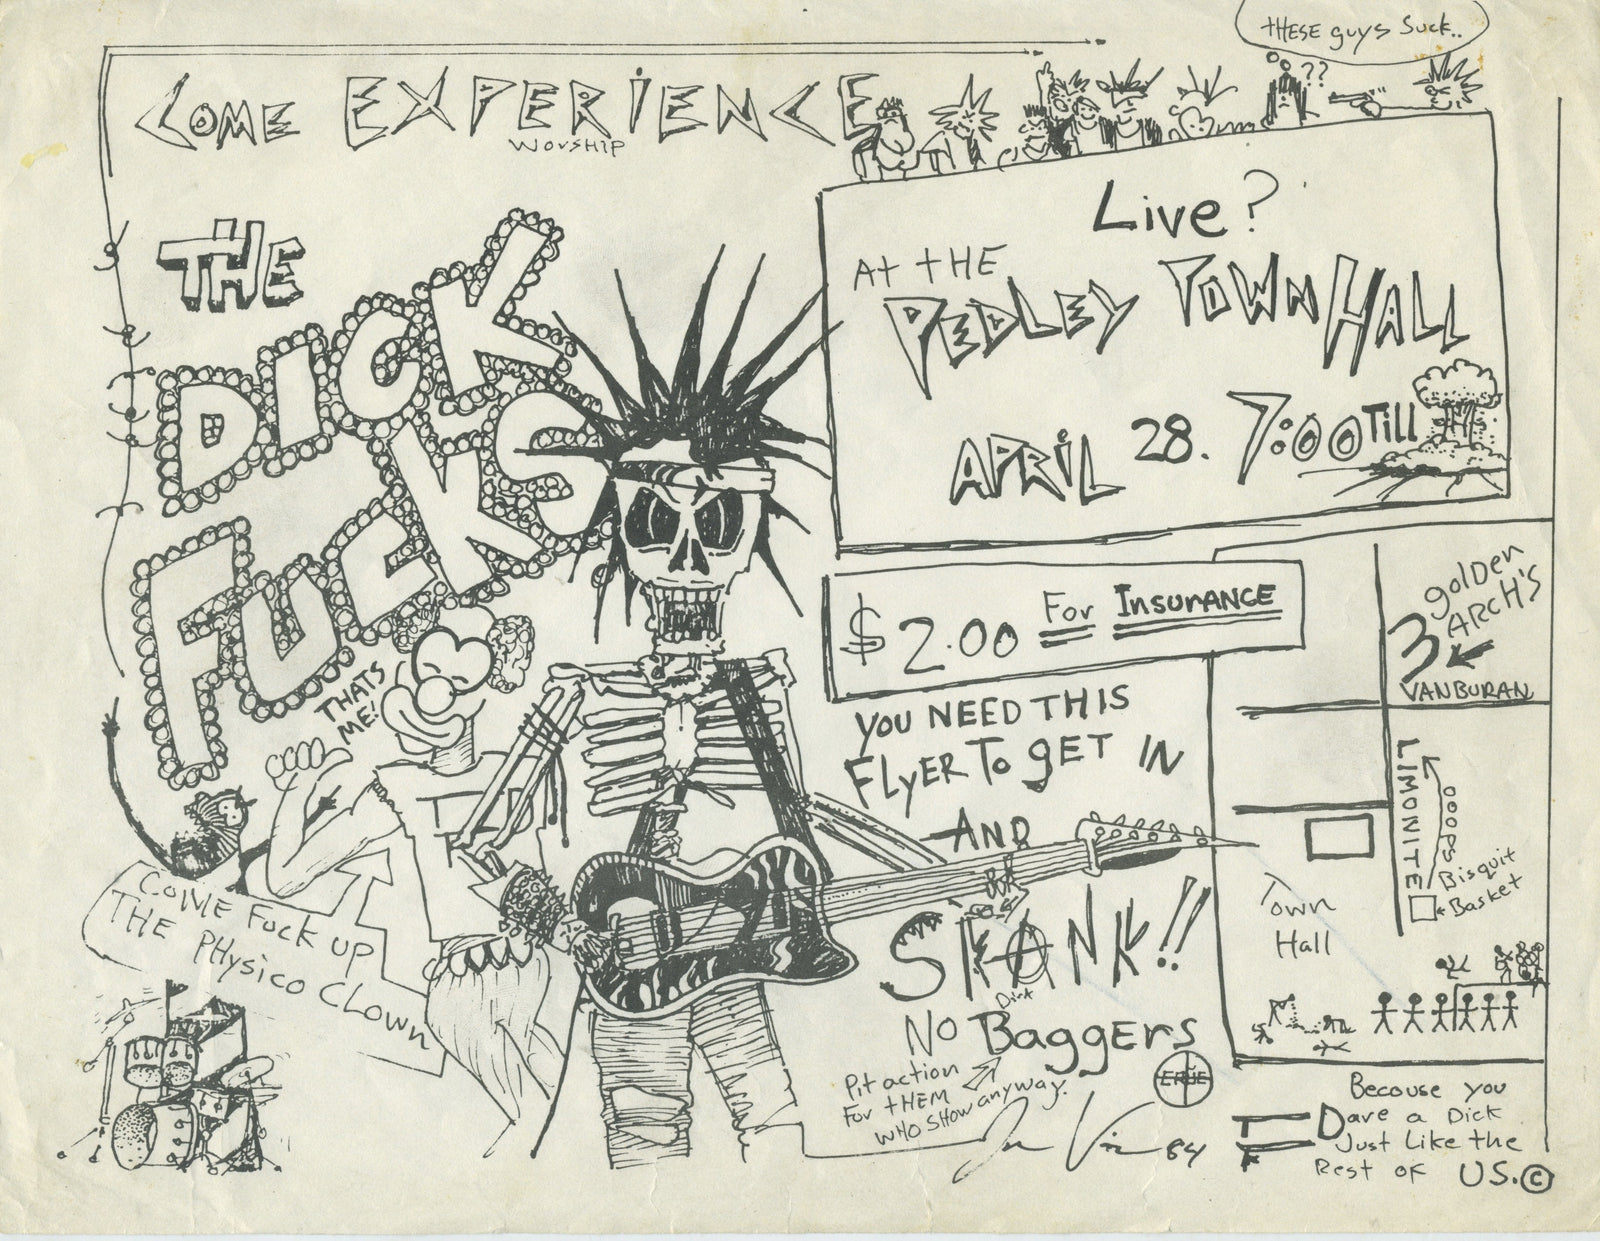 THESE guys Suck..
??
COME EXPERIENCE
WORSHIP
THE
DICK
FUCKS
THATS
ME!
COME FUCK UP
THE PHysico Clown
Live?
At tHE
PEDLEY TOWN HALL
APRIL 28. 7:00 Till
$2.00 For INSURANCE
YOU NEED THIS
FLYER To gET IN
AND
SKANK!!
Dirt
NO Baggers
Pit action
For tHEM
WHO SHOW anyway.
84
golDen
ARCH'S
3
VANBURAN
LIMONITE
OOOPS
Bisquit
Basket
Town
Hall
Because you
Dave a Dick
Just Like the
Rest of US.©